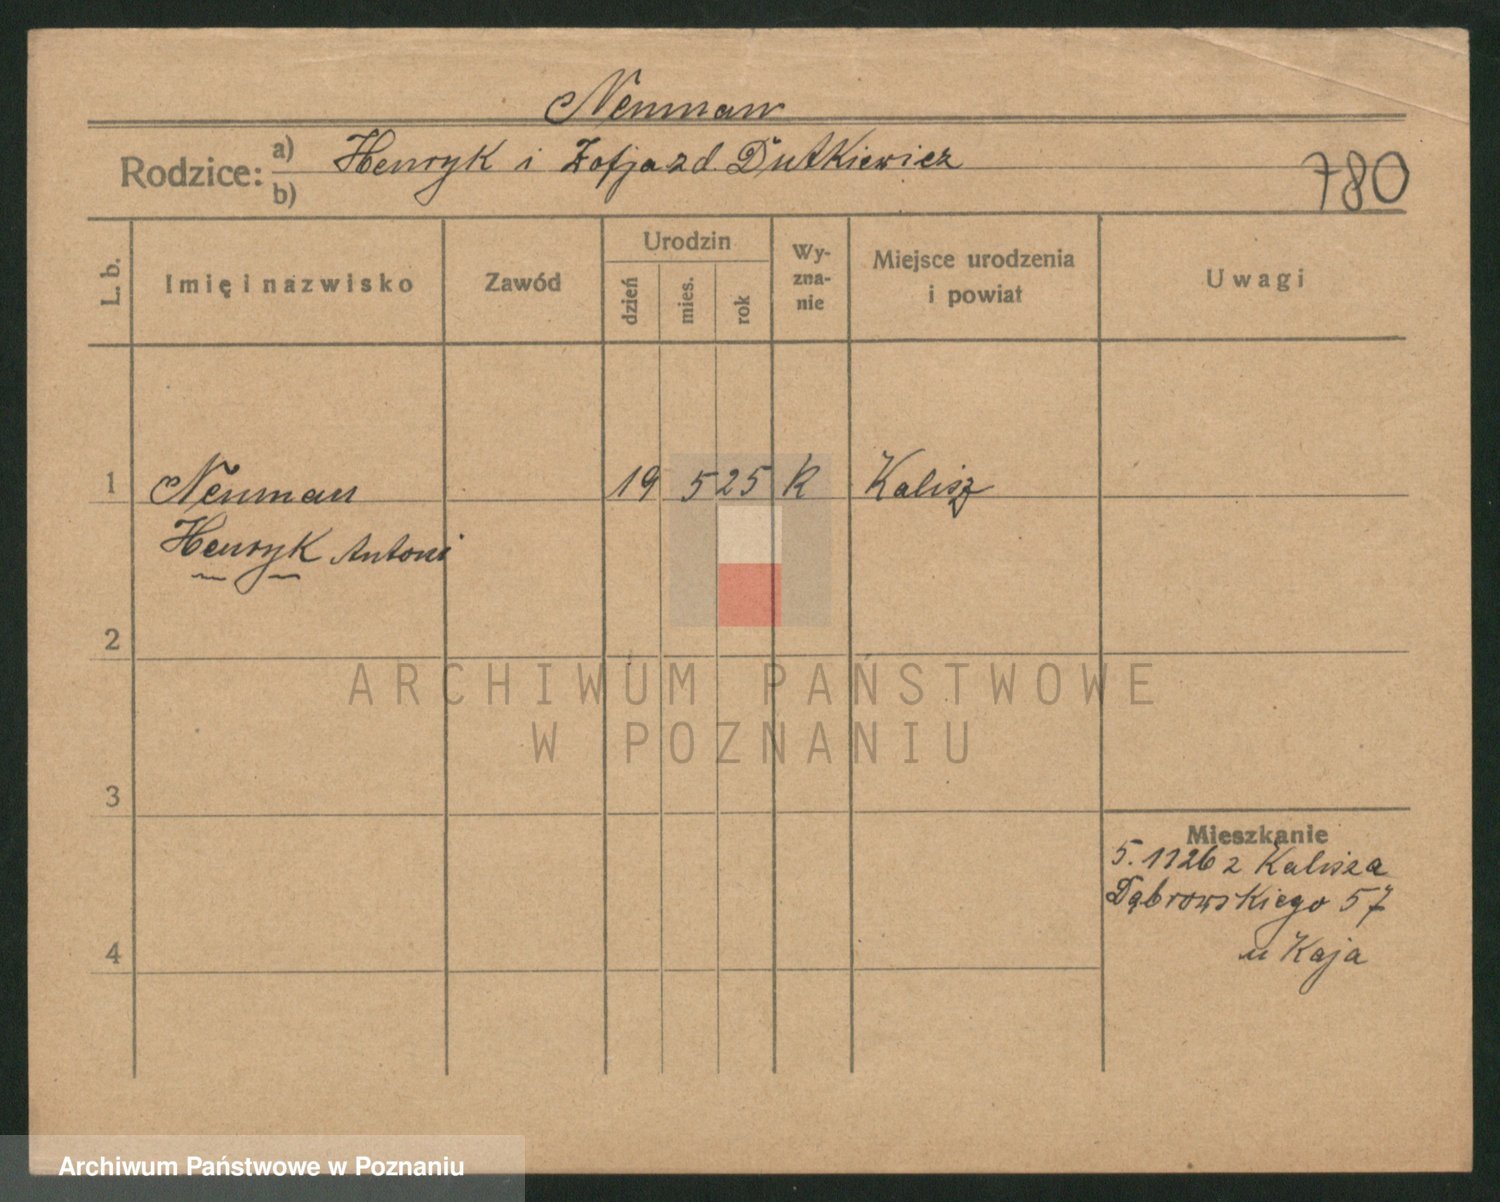 Neuman
Rodzice: a) Henryk i Zofja z d. Dutkiewicz
b)
780
L. b.
Imię i nazwisko
Zawód
Urodzin
dzień
mies.
rok
Wy-
zna-
nie
Miejsce urodzenia
i powiat
Uwagi
1 Neuman 19 5 25 K Kalisz
Henryk Antoni
2
3
4
Mieszkanie
5.1126 z Kalisza
Dąbrowskiego 57
u Kaja
ARCHIWUM PAŃSTWOWE
W POZNANIU
Archiwum Państwowe w Poznaniu